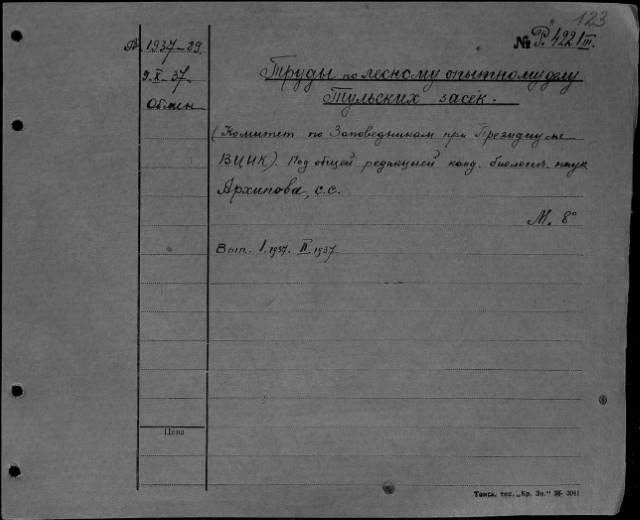 123
№ Р. 4221 III.
А 1937-89
9.X.37.
Обмен
Труды по лесному опытному делу
Тульских засек.
(Комитет по Заповедникам при Президиуме
ВЦИК). Под общей редакцией канд. биологич. наук
Архипова, С.С.
М. 8°
Вып. I. 1937. II. 1937.
Цена
Томск, тип. „Кр. Зн." 36 3041